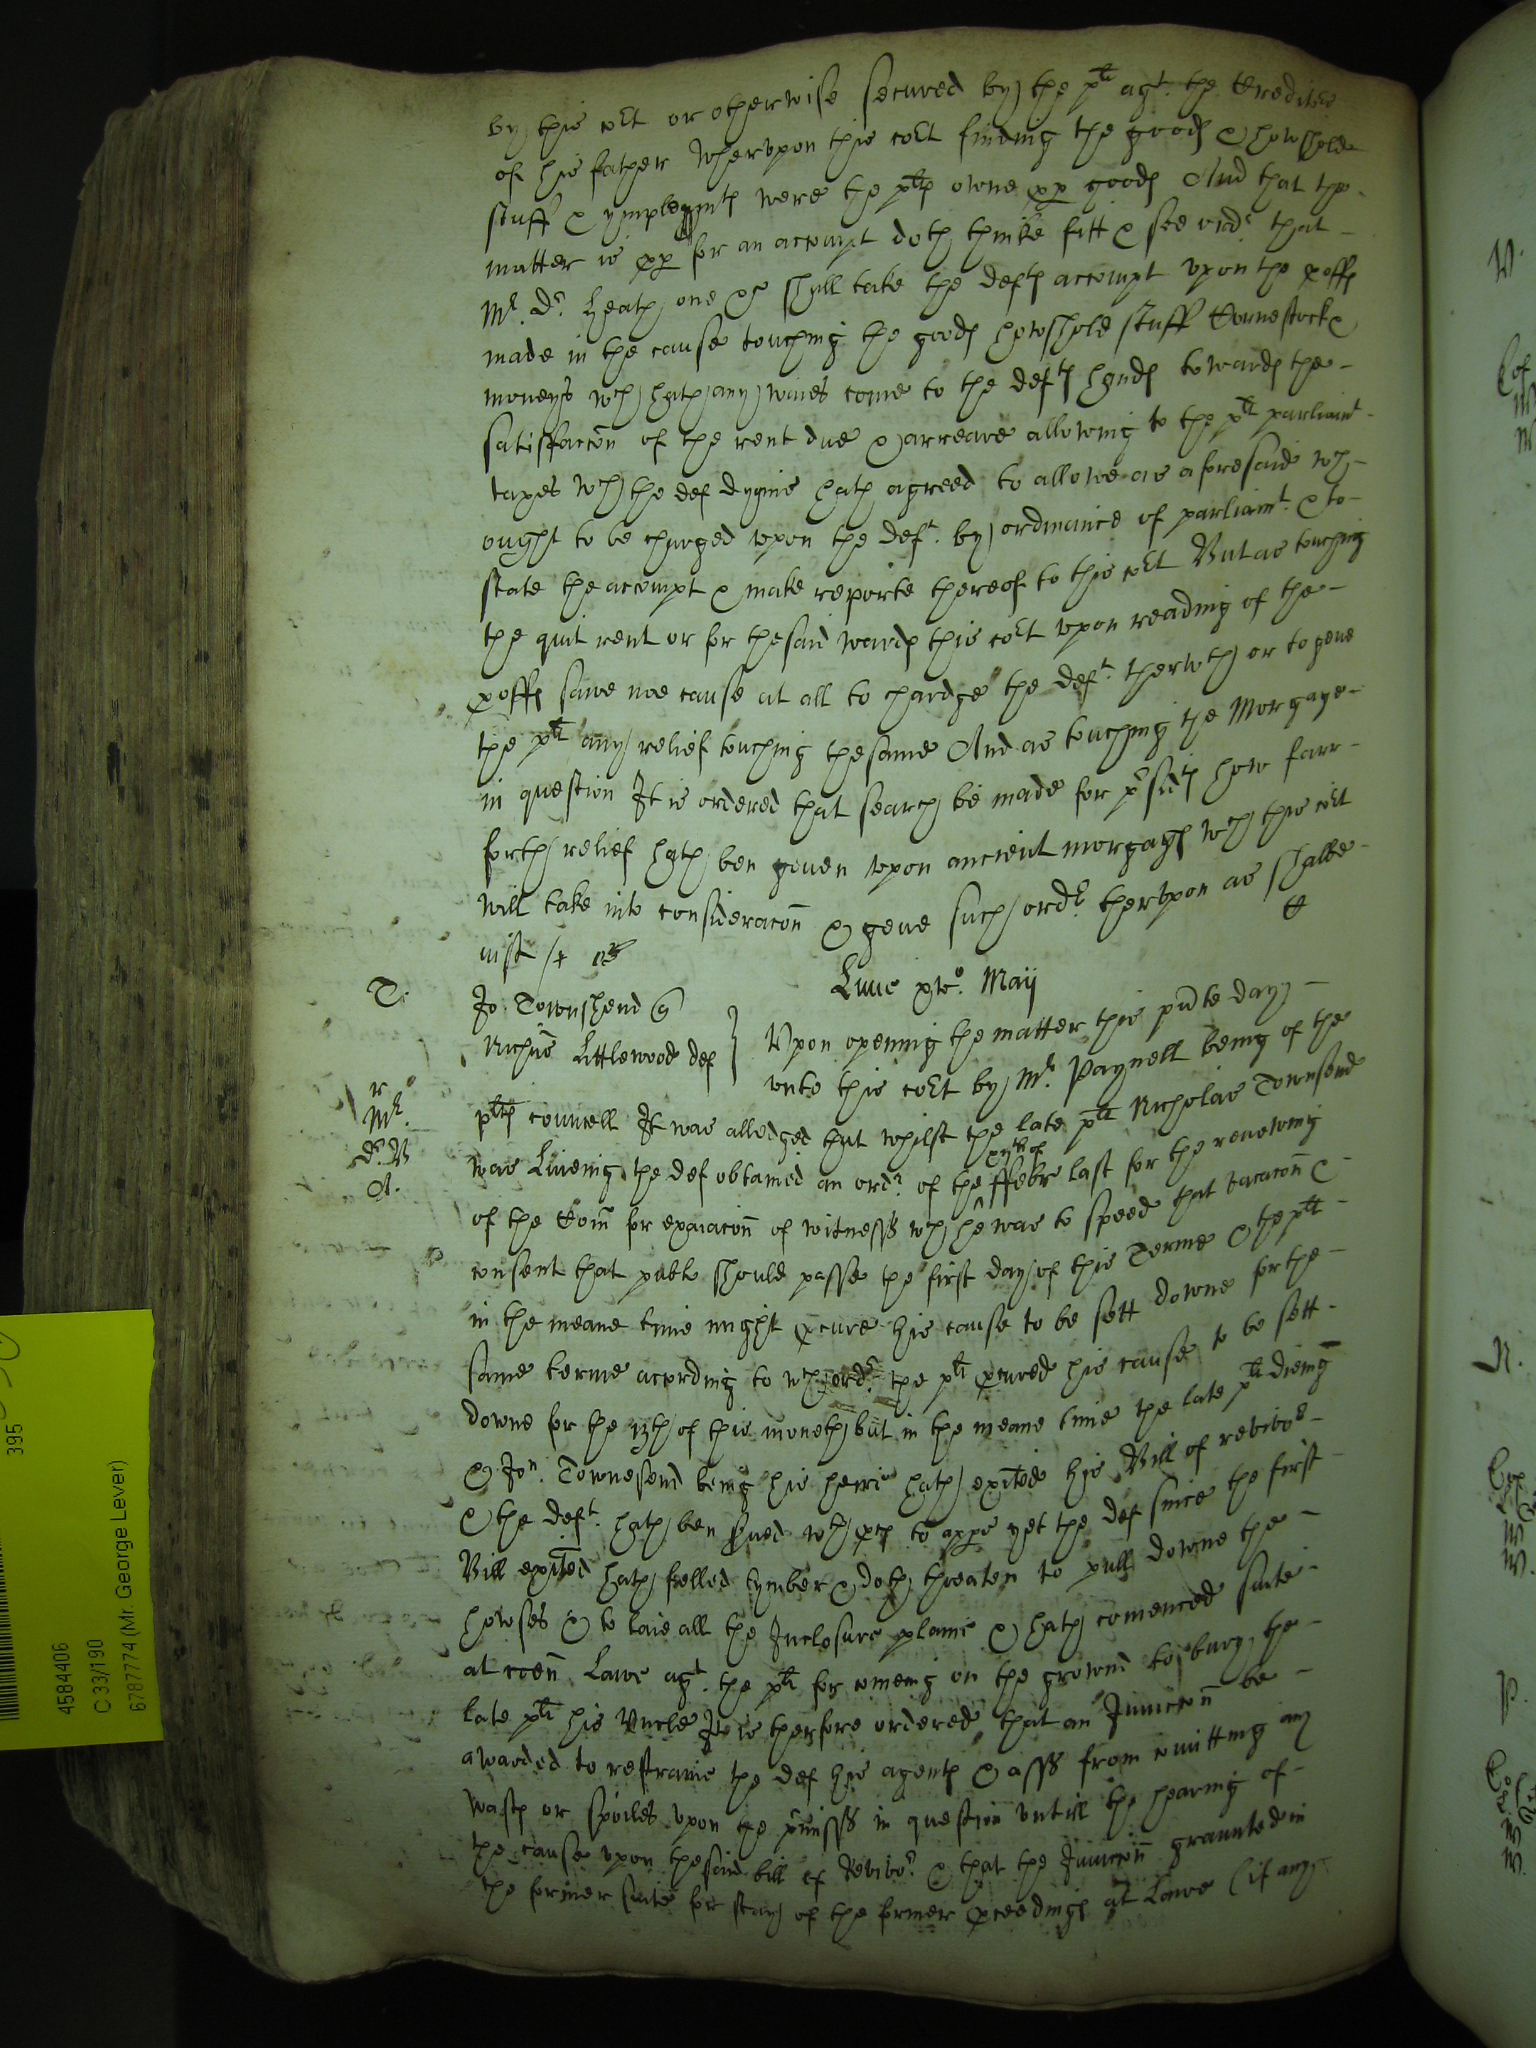 by this cort or otherwise secured by the plt agt. the Creditors
of his father Wherupon this cort finding the goods & howshold
stuff & ymplemts were the plts owne pp goods And that the
matter is pp for an accompt doth thinke fitt & soe ordr that
Mr. Dr. Heath one &c shall take the defts accompt upon the proffs
made in the cause touching the goods howshold stuff Cornestock &
moneys wch hath any waies come to the defts hands towards the
satisfaccon of the rent due & arreare allowing to the plt parliamt
taxes wch the def hath agreed to allowe as aforesaid wch
ought to be charged upon the deft. by ordinance of parliamt. & to
state the accompt & make reporte thereof to this cort But as touching
the quit rent or for the said wards this cort upon reading of the
proffs sawe noe cause at all to chardge the deft. therwth or to geve
the plt any relief touching the same And as touching the Morgage
in question It is ordered that search be made for psidts how farr
forth relief hath ben geven upon ancient morgags wch this cort
will take into consideracon & geve such ordr therupon as shalbe
iust
Lune xvo. Maij
T.
Jo: Townshend q
Richus Littlewood def
Upon opening the matter this pnte day
unto this cort by Mr. Paynell being of the
r
Mr.
Dr. B
A.
plts councell It was alledged that whilst the late plt Nicholas Townsend
was Liveing the def obtained an ordr. of the xvth of ffebr last for the renewing
of the Com for exaiacon of witness wch he was to speed that vacacon &
consent that publ should passe the first day of this Terme & the plt
in the meane time might pcure his cause to be sett downe for the
same terme according to wch ordr. the plt pcured his cause to be sett
downe for the 13th of this moneth but in the meane time the late plt dieing
& Jon. Townesend being his heire hath exited his Bill of revivor
& the deft. hath ben sued wth pces to appe yet the def since the first
Bill exited hath felled tymber & doth threaten to pull downe the
howses & to laie all the Inclosure plaine & hath comenced suite
at coen Lawe agt. the plt for comeing on the grownd to bury the
late plt his Uncle It is therfore ordered that an Iniuccon be
awarded to restraine the def his agents & asss from comitting any
wasts or spoiles upon the pmisss in question untill the hearing of
the cause upon the said bill of Revivor & that the Iniuccon graunted in
the former suite for stay of the former pceedings at Lawe (if any
395
4584406
C 33/190
6787774 (Mr. George Lever)